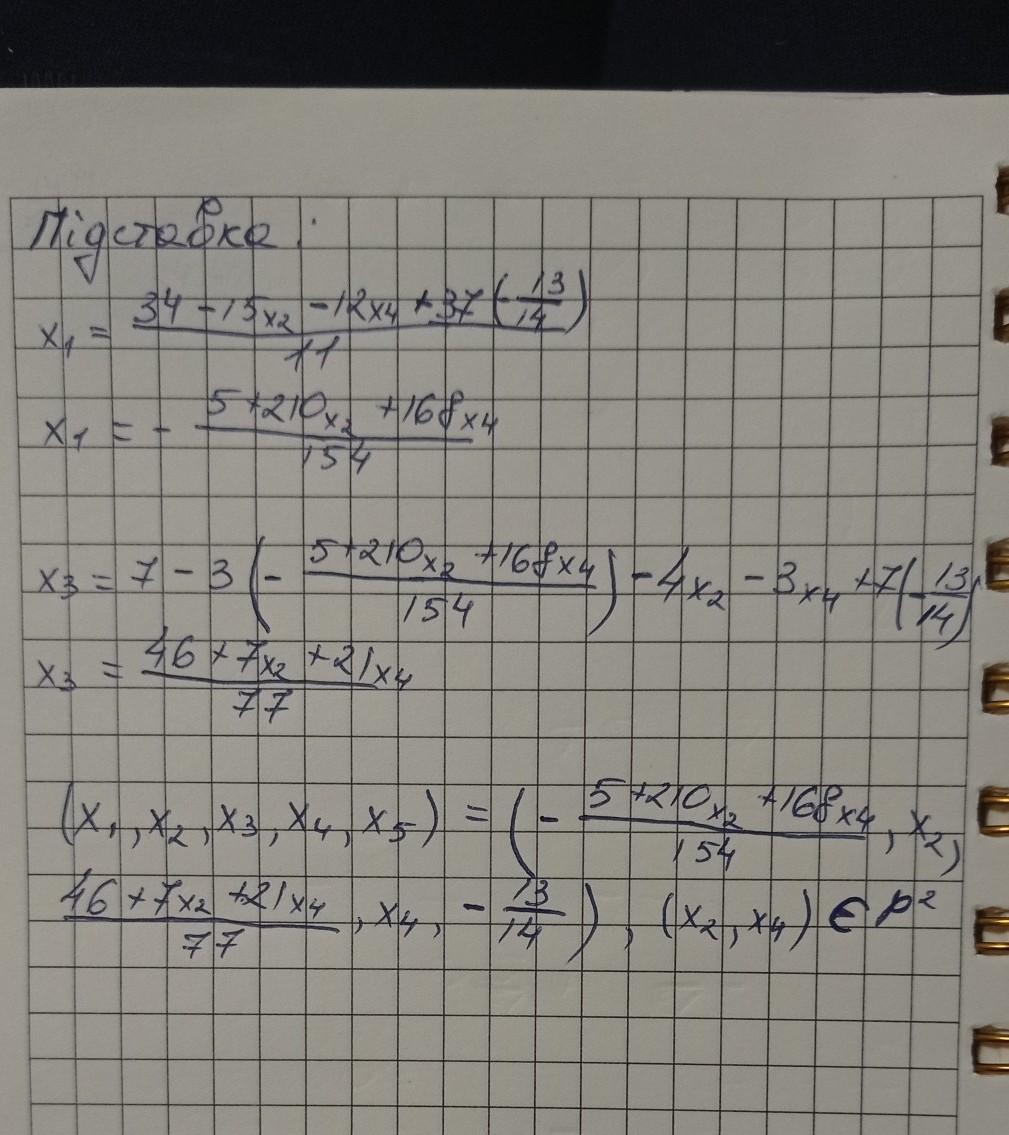 Підставка:
x₁ = (34 - 15x₂ - 12x₄ + 37(-13/14))/11
x₁ = - (5 + 210x₂ + 168x₄)/154
x₃ = 7 - 3(- (5 + 210x₂ + 168x₄)/154) - 4x₂ - 3x₄ + 7(-13/14)
x₃ = (46 + 7x₂ + 21x₄)/77
(x₁, x₂, x₃, x₄, x₅) = (- (5 + 210x₂ + 168x₄)/154, x₂,
(46 + 7x₂ + 21x₄)/77, x₄, - 13/14), (x₂, x₄) ∈ P²